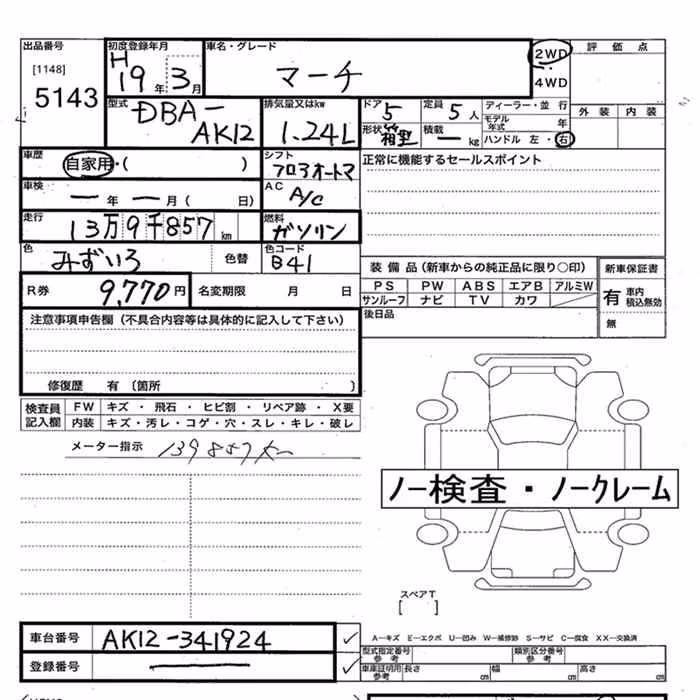 出品番号 初度登録年月 車名・グレード 2WD 評価点
[1148] H マーチ
5143 19年 3月 4WD
型式 排気量又はkw ドア 定員 ディーラー・並行 外装 内装
DBA- 5 5人 モデル年式 年
AK12 1.24L 形状 箱型 積載 ーkg ハンドル 左・右
車歴 シフト 正常に機能するセールスポイント
自家用・( ) フロアオートマ
車検 AC
ー年ー月( 日) A/C
走行 燃料
13万9千857km ガソリン
色 色コード
みずいろ 色替 B41 装備品(新車からの純正品に限り○印) 新車保証書
R券 9,770円 名変期限 月 日 PS PW ABS エアB アルミW 有 車内積込無効
サンルーフ ナビ TV カワ
注意事項申告欄(不具合内容等は具体的に記入して下さい) 後日品 無
修復歴 有 〔箇所 〕
検査員 FW キズ・飛石・ヒビ割・リペア跡・X要
記入欄 内装 キズ・汚レ・コゲ・穴・スレ・キレ・破レ
メーター指示 139857K
ノー検査・ノークレーム
スペアT
[ ]
車台番号 AK12-341924 A―キズ E―エクボ U―凹み W―補修跡 S―サビ C―腐食 XX―交換済
型式指定番号 参考 類別区分番号 参考
登録番号 ー 車庫証明用 参考 長さ cm 幅 cm 高さ cm